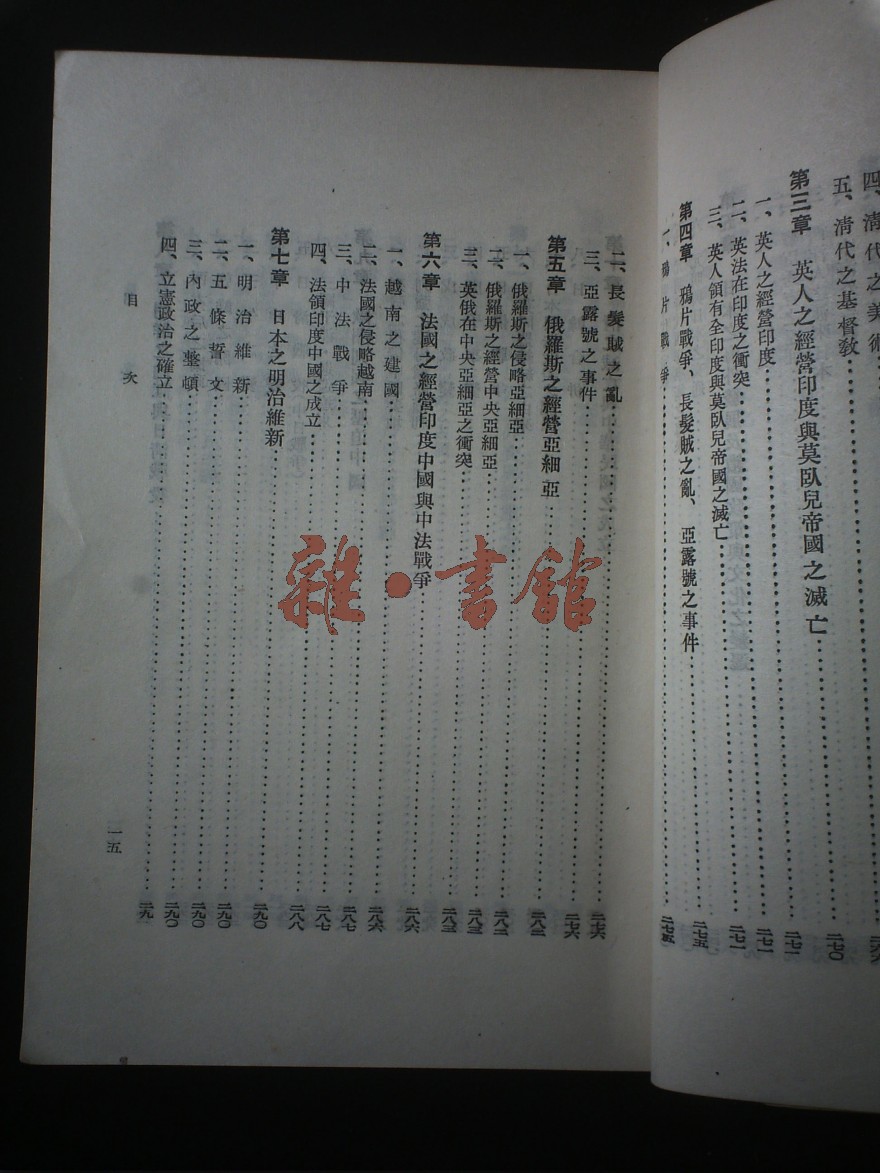 四、清代之美術
五、清代之基督敎……二七〇
第三章　英人之經營印度與莫臥兒帝國之滅亡……二七一
一、英人之經營印度……二七一
二、英法在印度之衝突……二七一
三、英人領有全印度與莫臥兒帝國之滅亡
第四章　鴉片戰爭、長髮賊之亂、亞露號之事件……二七五
一、鴉片戰爭……二七五
二、長髮賊之亂……二七六
三、亞露號之事件……二七六
第五章　俄羅斯之經營亞細亞……二八二
一、俄羅斯之侵略亞細亞……二八二
二、俄羅斯之經營中央亞細亞……二八三
三、英俄在中央亞細亞之衝突……二八三
第六章　法國之經營印度中國與中法戰爭……二八六
一、越南之建國……二八六
二、法國之侵略越南……二八六
三、中法戰爭……二八七
四、法領印度中國之成立……二八七
第七章　日本之明治維新……二九〇
一、明治維新……二九〇
二、五條誓文……二九〇
三、內政之整頓……二九〇
四、立憲政治之確立……二九一
目次
一五
雜·書館